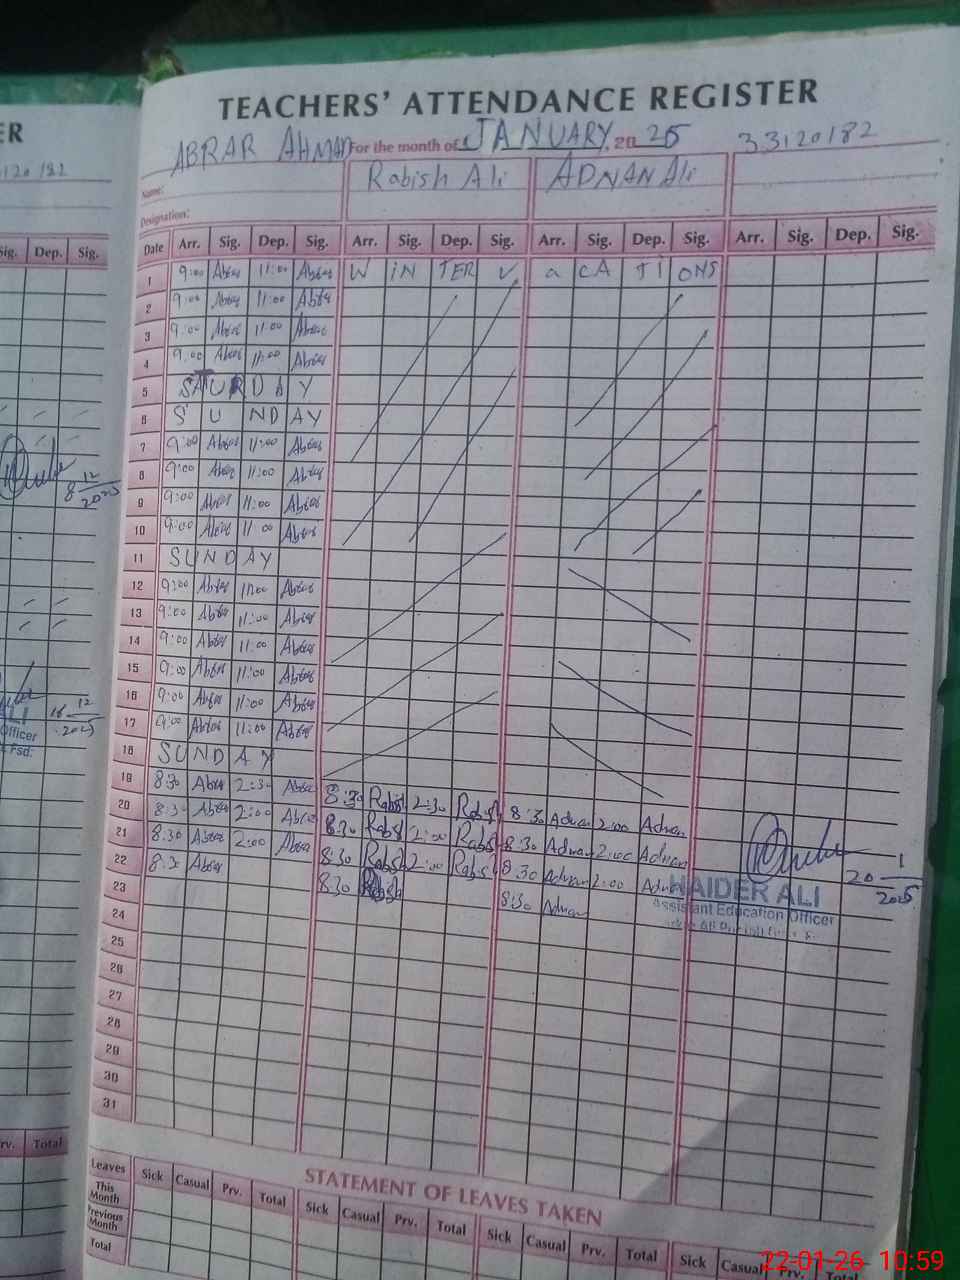 TEACHERS' ATTENDANCE REGISTER
ABRAR AHMAD For the month of JANUARY, 20 25 33120182
Name: Rabish Ali ADNAN Ali
Designation:
Date Arr. Sig. Dep. Sig. Arr. Sig. Dep. Sig. Arr. Sig. Dep. Sig. Arr. Sig. Dep. Sig.
1 9:00 Abrar 11:00 Abrar W iN TER V a CA Ti ONS
2 9:00 Abrar 11:00 Abrar
3 9:00 Abrar 11:00 Abrar
4 9:00 Abrar 11:00 Abrar
5 SATURDAY
6 SUNDAY
7 9:00 Abrar 11:00 Abrar
8 9:00 Abrar 11:00 Abrar
9 9:00 Abrar 11:00 Abrar
10 9:00 Abrar 11:00 Abrar
11 SUNDAY
12 9:00 Abrar 11:00 Abrar
13 9:00 Abrar 11:00 Abrar
14 9:00 Abrar 11:00 Abrar
15 9:00 Abrar 11:00 Abrar
16 9:00 Abrar 11:00 Abrar
17 9:00 Abrar 11:00 Abrar
18 SUNDAY
19 8:30 Abrar 2:30 Abrar 8:30 Rabish 2:30 Rabish 8:30 Adnan 2:00 Adnan
20 8:30 Abrar 2:00 Abrar 8:30 Rabish 2:00 Rabish 8:30 Adnan 2:00 Adnan
21 8:30 Abrar 2:00 Abrar 8:30 Rabish 2:00 Rabish 8:30 Adnan 2:00 Adnan
22 8:30 Abrar 8:30 Rabish 8:30 Adnan
20 1 2025
HAIDER ALI
Assistant Education Officer
23
24
25
26
27
28
29
30
31
STATEMENT OF LEAVES TAKEN
Leaves Sick Casual Prv. Total Sick Casual Prv. Total Sick Casual Prv. Total Sick Casual Prv. Total
This Month
Previous Month
Total
ER
120182
Sig. Dep. Sig.
8 12 2025
16 12 2025
ALI
Officer
Fsd.
Prv. Total
22-01-26 10:59